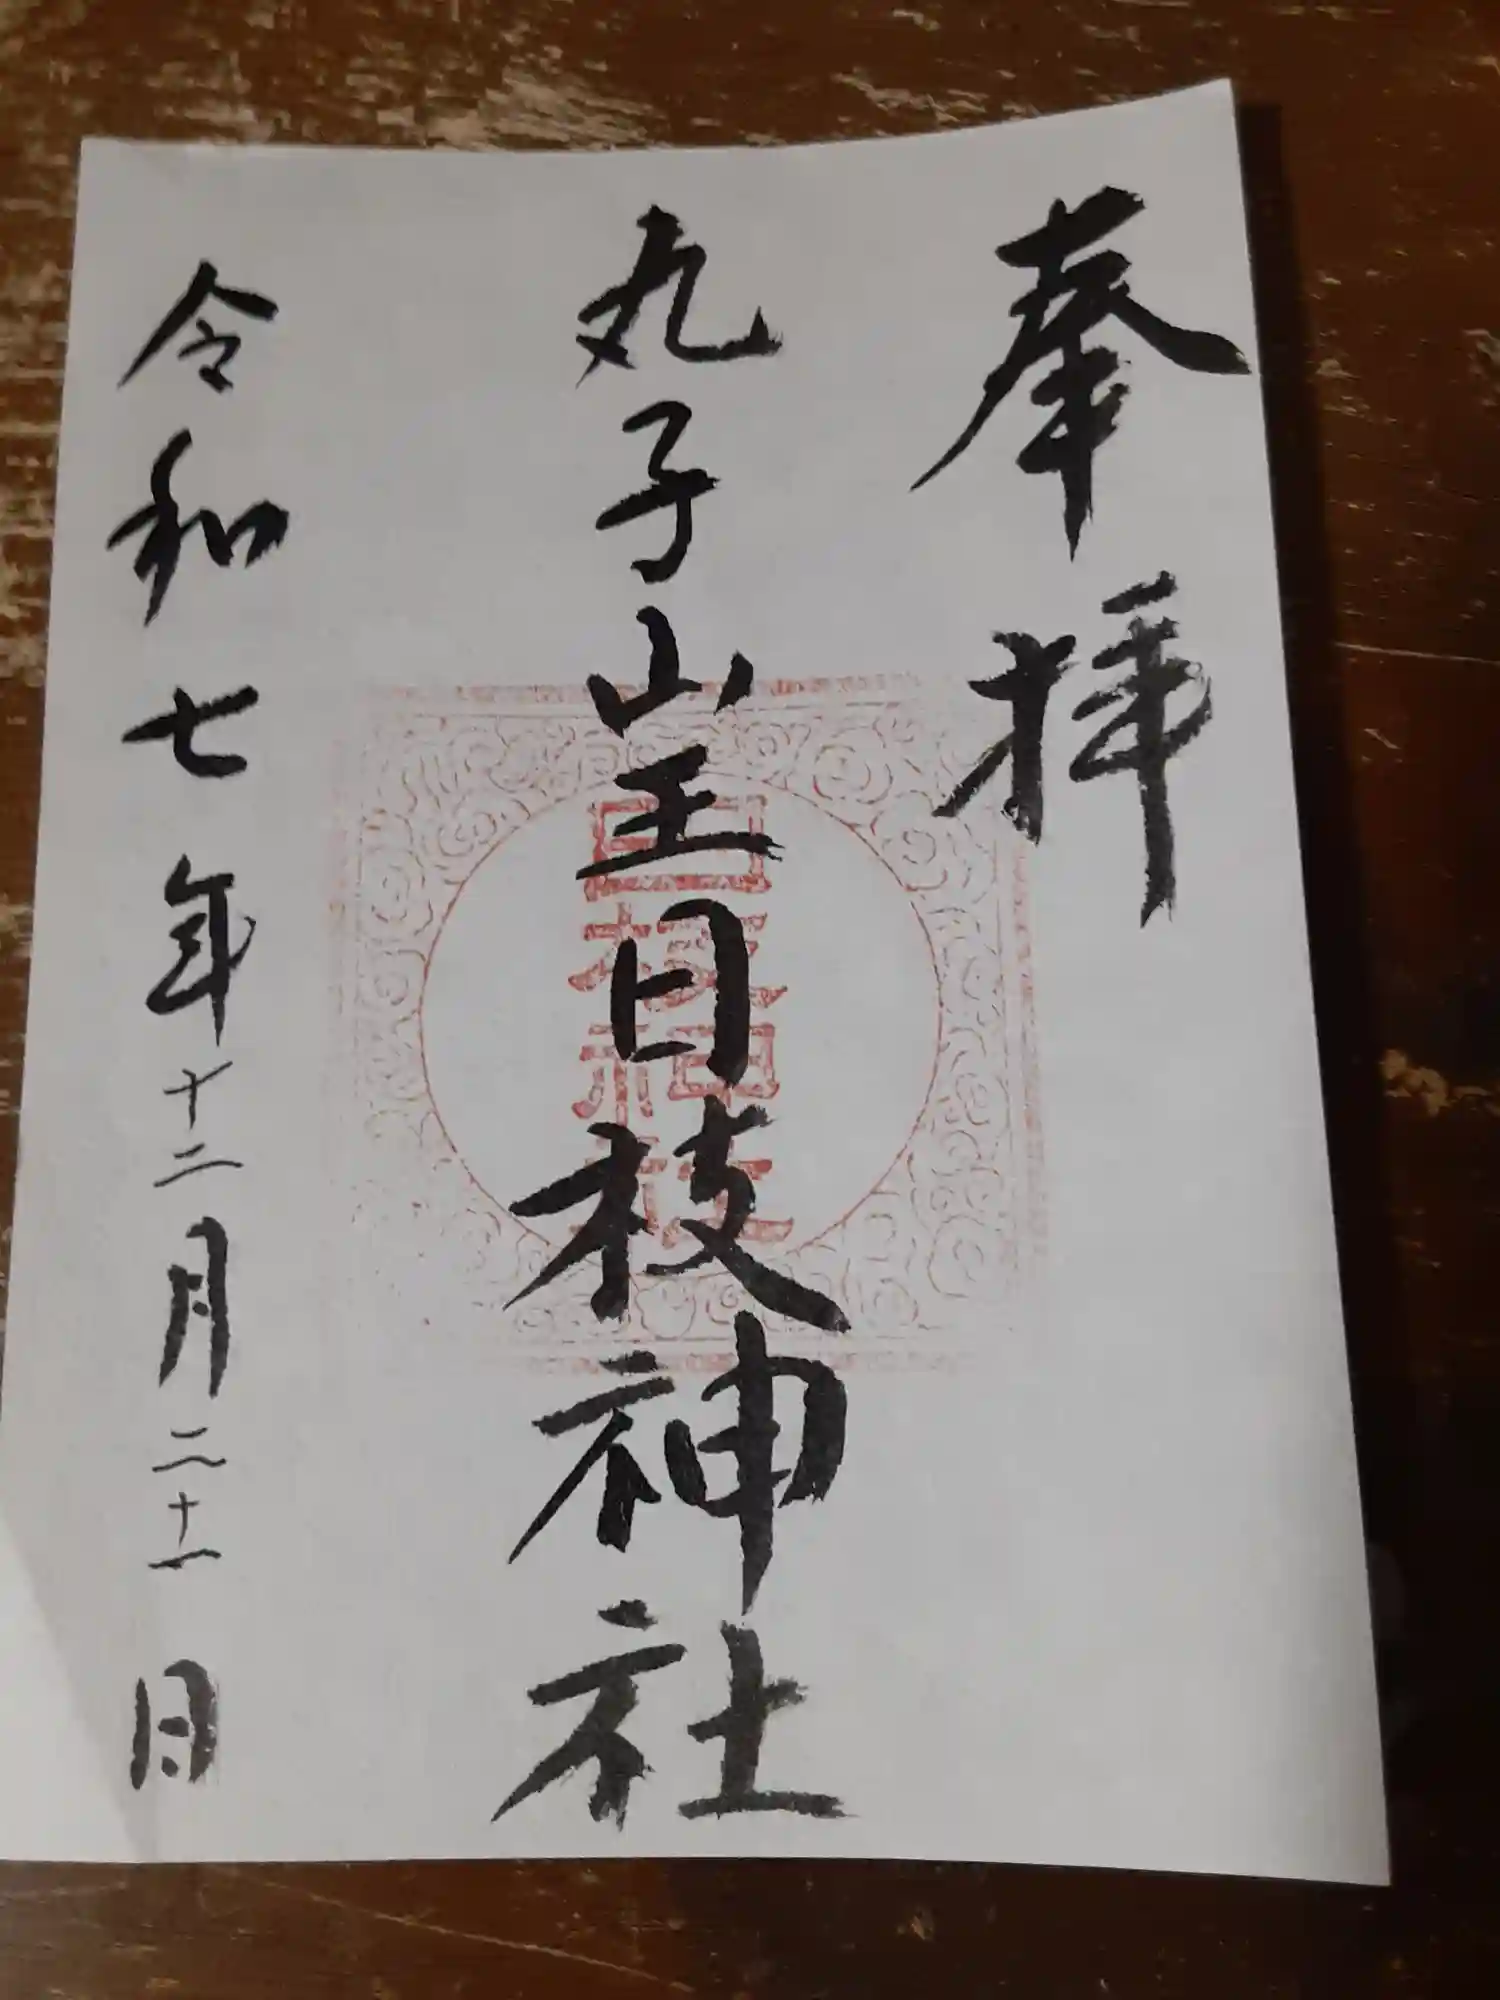 奉拝
丸子山王日枝神社
日枝神社
令和七年十二月二十一日